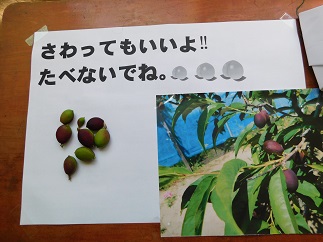 さわってもいいよ!!
たべないでね。